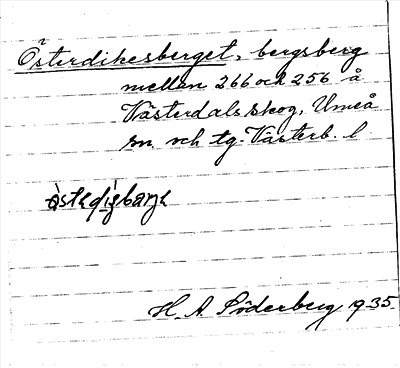 Österdikesberget, bergsberg
mellan 266 och 256 å
Västerdals skog, Umeå
sn. och tg. Västerb. l.
H. A. Söderberg 1935.